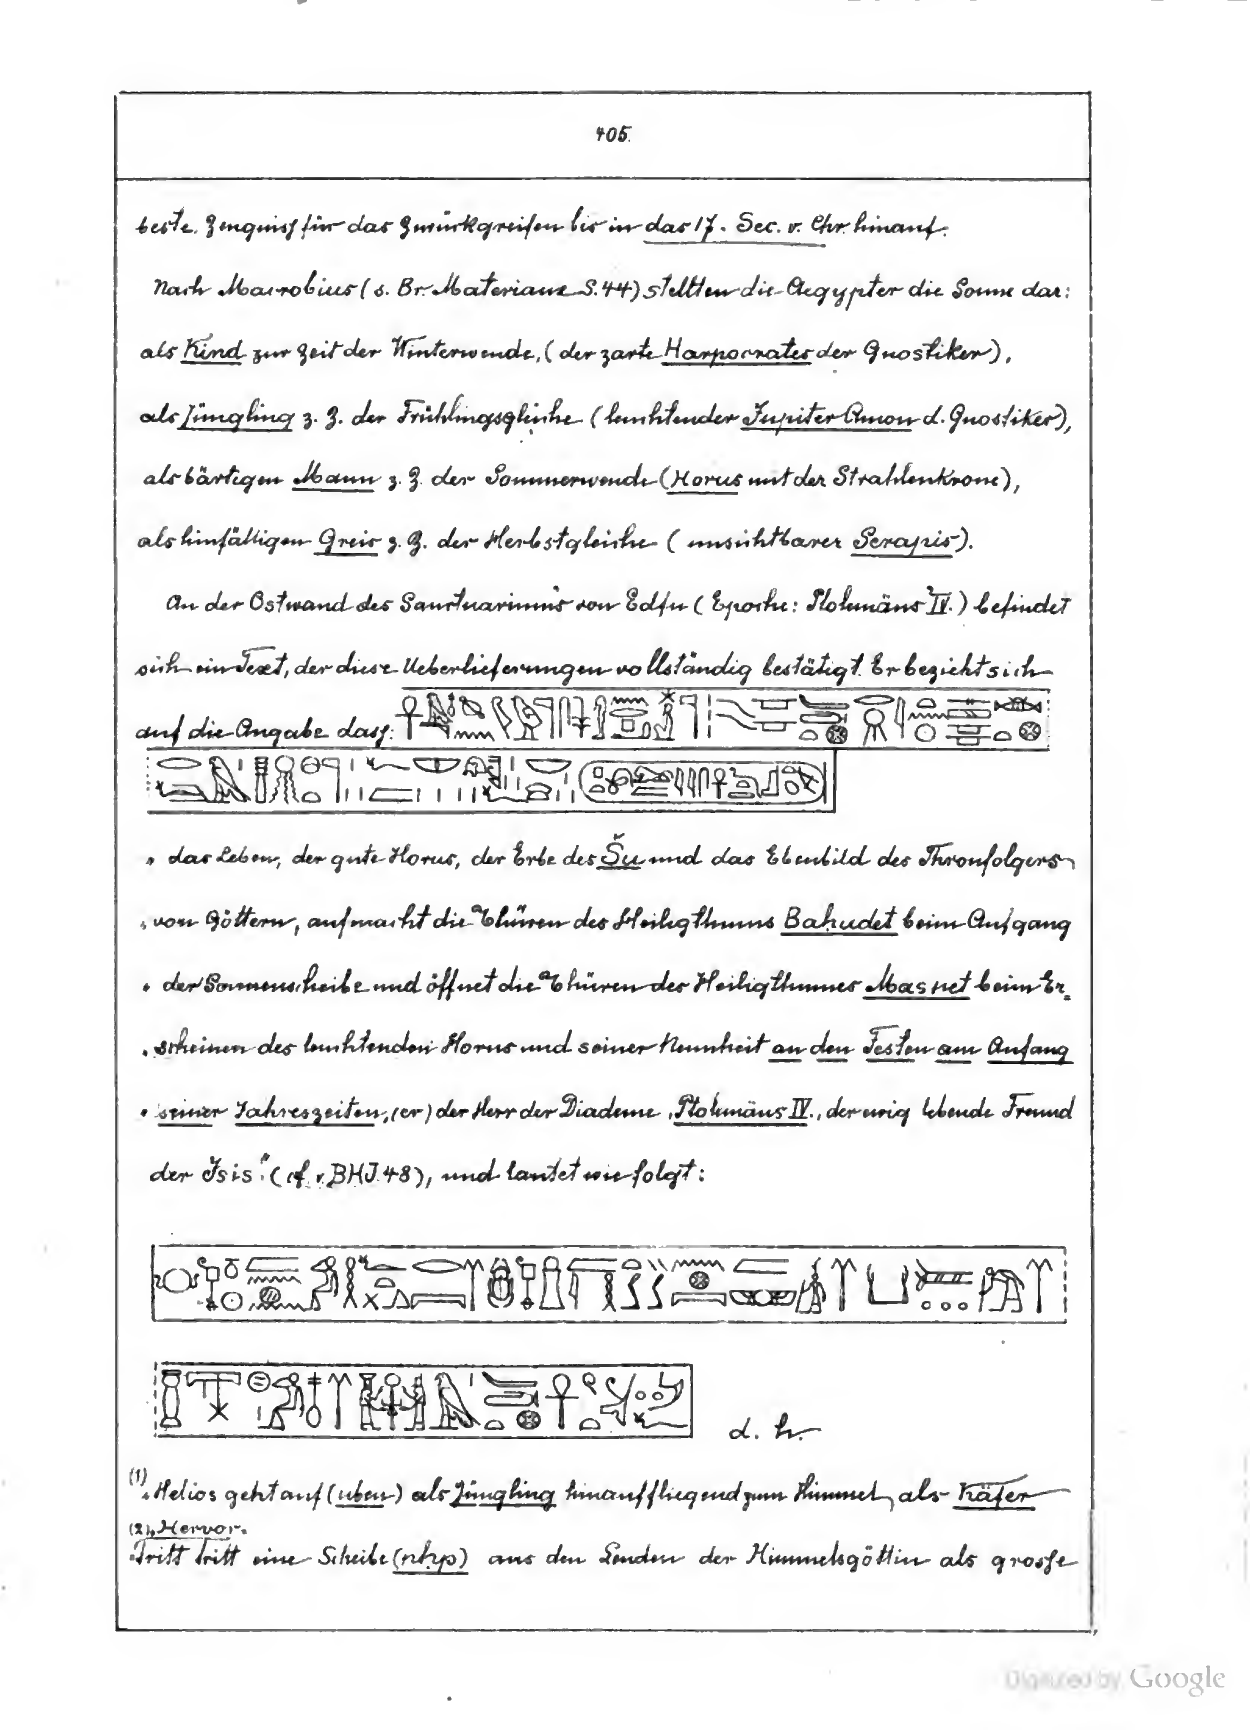 405.
beste Zeugniss für das Zurückgreifen bis in das 17. Sec. v. Chr. hinauf.
Nach Macrobius (s. Br. Materiaux S. 44) stellten die Aegypter die Sonne dar:
als Kind zur Zeit der Winterwende, (der zarte Harpocrates der Gnostiker),
als Jüngling z. Z. der Frühlingsgleiche (leuchtender Jupiter Amon d. Gnostiker),
als bärtigen Mann z. Z. der Sommerwende (Horus mit der Strahlenkrone),
als hinfälligen Greis z. Z. der Herbstgleiche (unsichtbarer Serapis).
An der Ostwand des Sanctuariums von Edfu (Epoche: Ptolemäus IV.) befindet
sich ein Text, der diese Ueberlieferungen vollständig bestätigt. Er bezieht sich
auf die Angabe dass:
„ das Leben, der gute Horus, der Erbe des Šu und das Ebenbild des Thronfolgers
„ von Göttern, aufmacht die Thüren des Heiligthums Bahudet beim Aufgang
„ der Sonnenscheibe und öffnet die Thüren des Heiligthumes Masnet beim Er-
„ scheinen des leuchtenden Horus und seiner Neunheit an den Festen am Anfang
„ seiner Jahreszeiten, (er) der Herr der Diademe, Ptolemäus IV., der ewig lebende Freund
der Isis" (cf. v. BHI. 48), und lautet wie folgt:
d. h.
(1) „Helios geht auf (uben) als Jüngling hinauffliegend zum Himmel, als Käfer
(2) „Hervor.
Tritt Tritt eine Scheibe (nhp) aus den Lenden der Himmelsgöttin als grosse
Digitized by Google